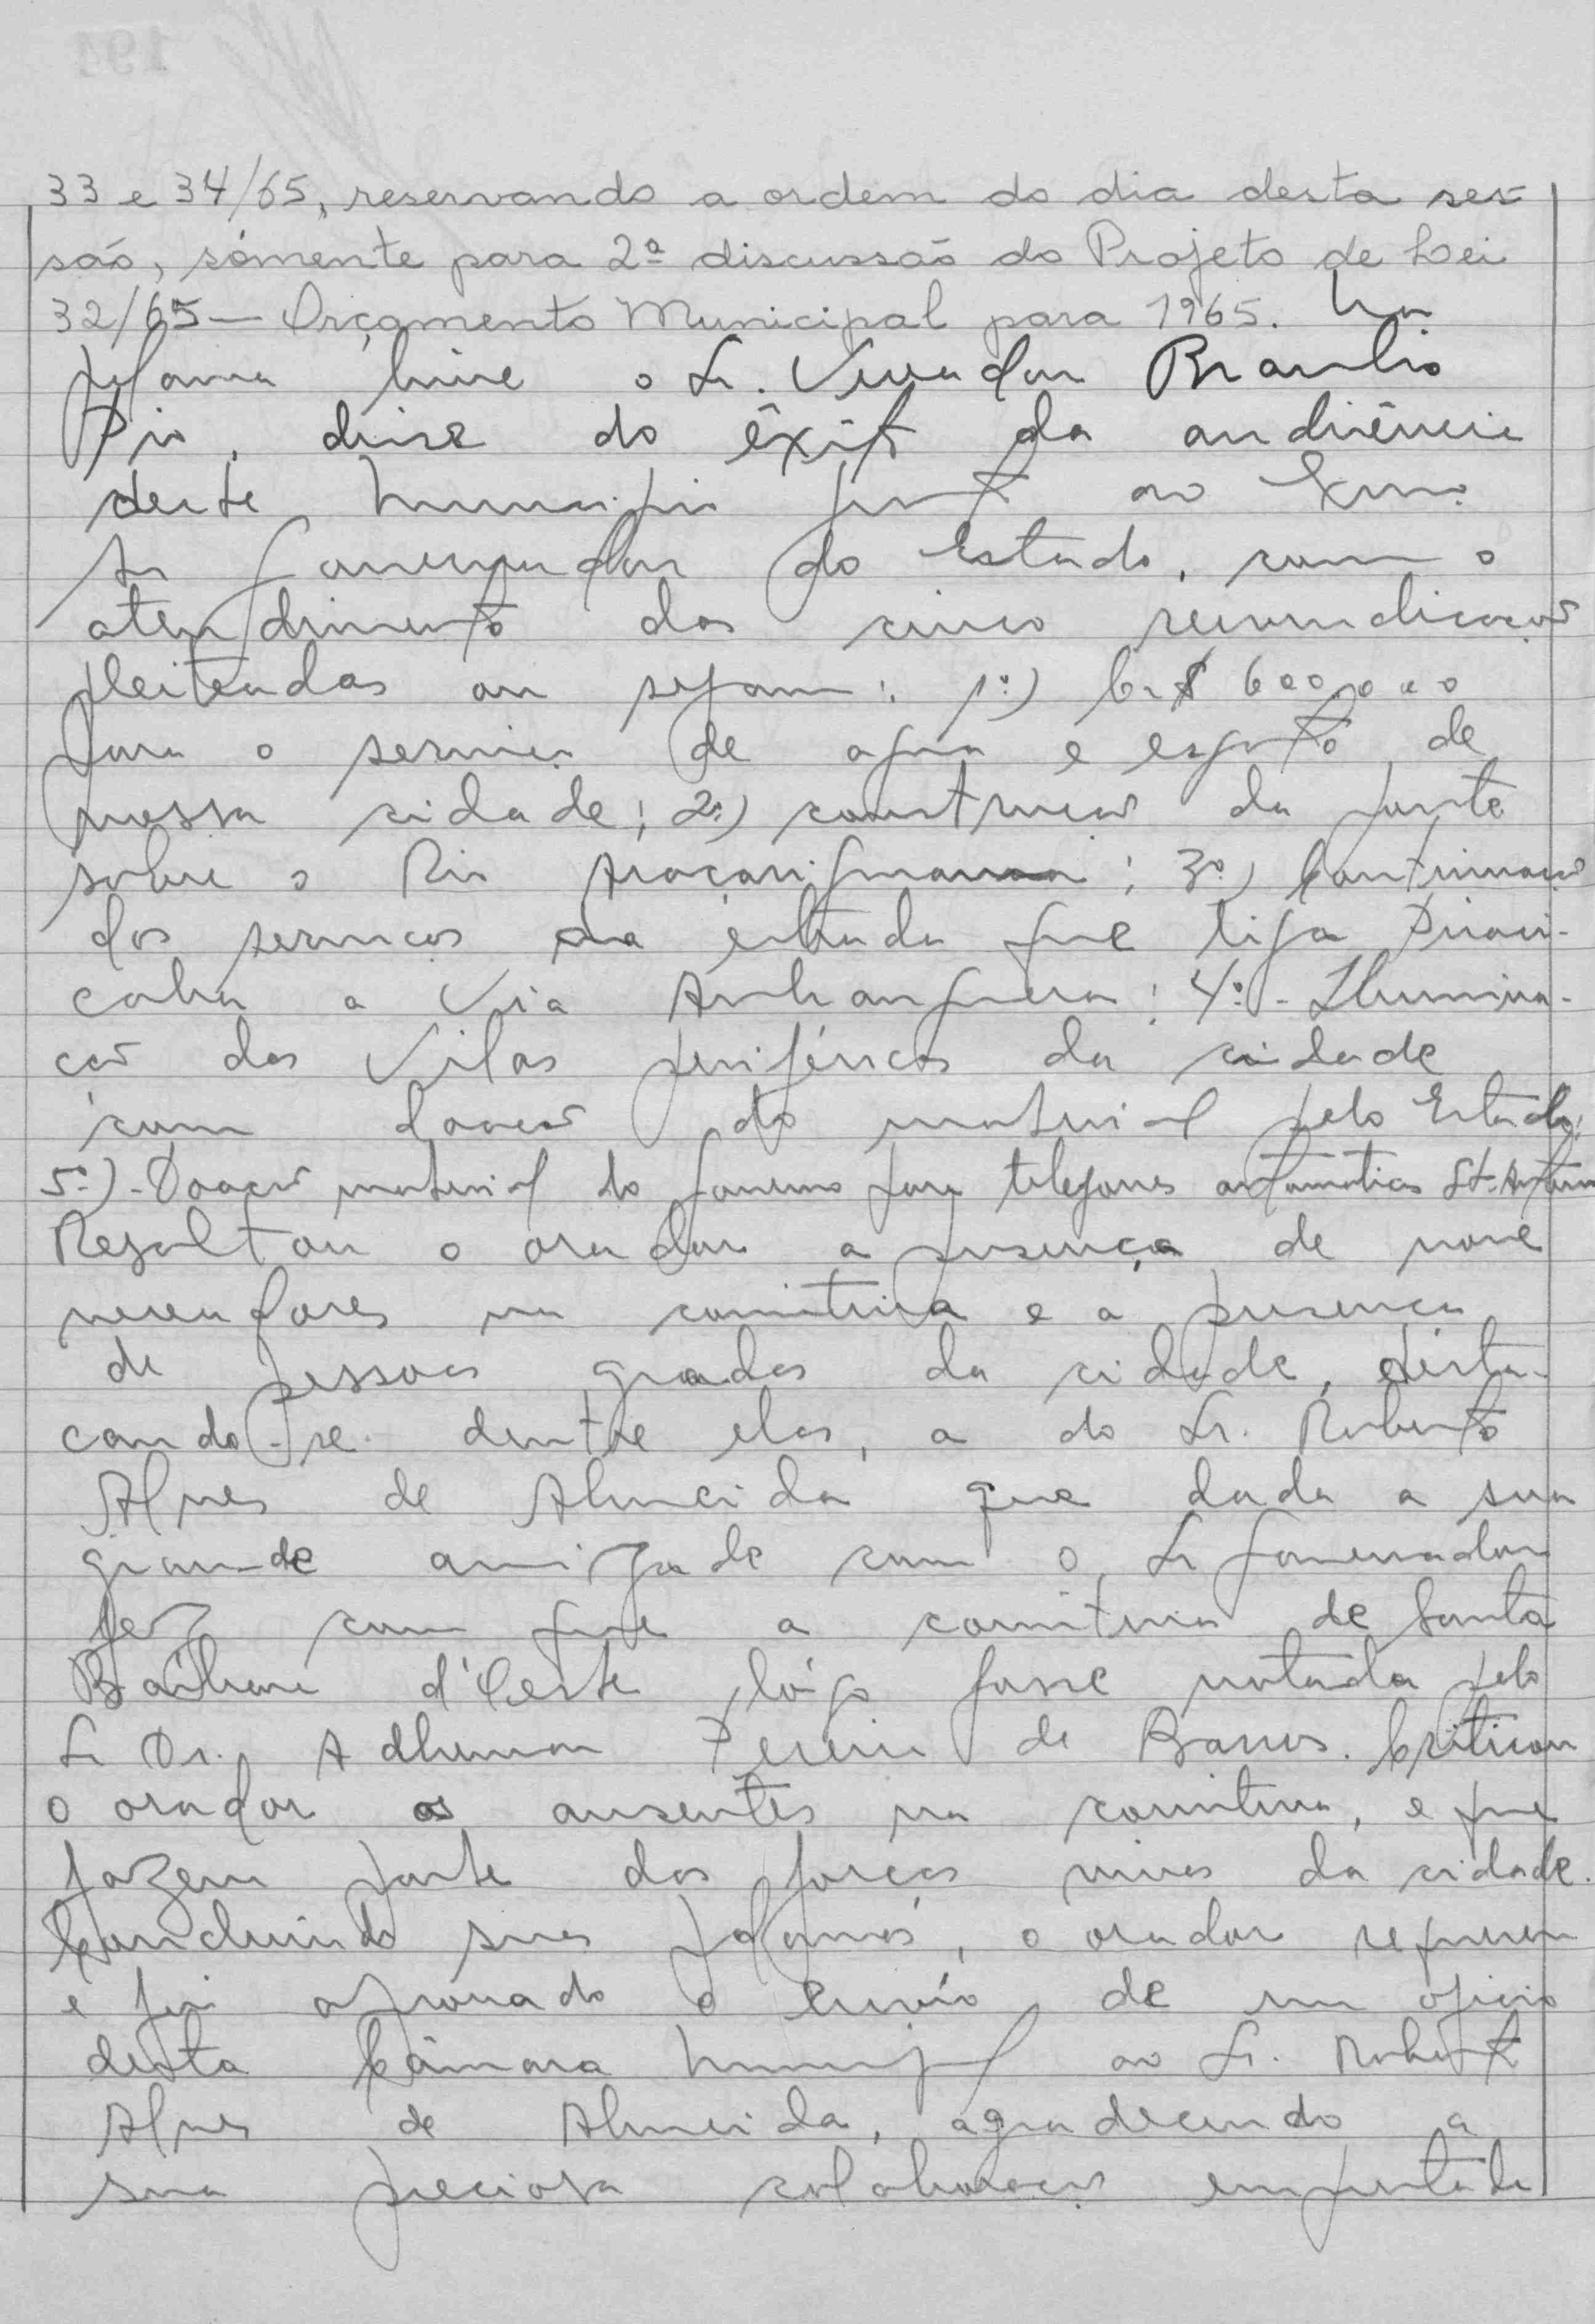 33 e 34/65, reservando a ordem do dia desta ses-
são, sòmente para 2ª discussão do Projeto de Lei
32/65 — Orçamento Municipal para 1965. Na
palavra livre o Sr. Vereador Braulio
Pio, disse do êxito da audiência
deste Município junto ao Exmo.
Sr Governador do Estado, com o
atendimento das cinco reivindicações
pleiteadas ou sejam: 1º) Cr$ 600.000
para o serviço de agua e esgoto de
nossa cidade; 2º) construção da ponte
sobre o Rio Araçariguama; 3º) Continuação
dos serviços da estrada que liga Piraci-
caba a Via Anhanguera; 4º - Ilumina-
ção das Vilas periféricas da cidade
com doação do material pelo Estado;
5º) - Doação material do Governo para telefones automáticos St. Antonio
Resaltou o orador a presença de nove
vereadores na comitiva e a presença
de pessoas gradas da cidade, desta-
cando-se dentre elas, a do Sr. Roberto
Alves de Almeida que dada a sua
grande amizade com o Sr Governador
fez com que a comitiva de Santa
Bárbara d'Oeste lógo fosse notada pelo
Sr Dr. Adhemar Pereira de Barros. Criticou
o orador os ausentes na comitiva, e que
fazem parte das forças vivas da cidade.
Concluindo sua palavras, o orador requereu
e foi aprovado o envio de um oficio
desta Câmara Municipal ao Sr. Roberto
Alves de Almeida, agradecendo a
sua preciosa colaboração emprestada